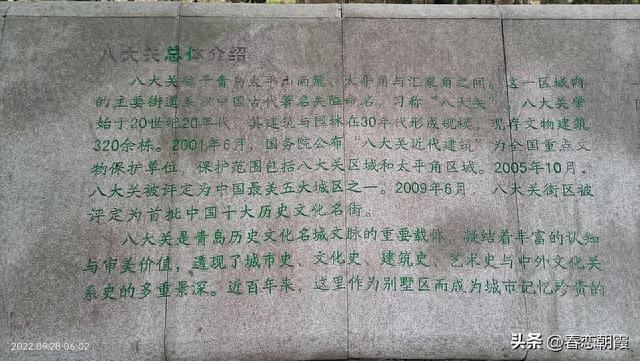 八大关总体介绍
八大关位于青岛太平山南麓、太平角与汇泉角之间。这一区域内
的主要街道系以中国古代著名关隘命名，习称“八大关”。八大关肇
始于20世纪20年代，其建筑与园林在30年代形成规模，现存文物建筑
320余栋。2001年6月，国务院公布“八大关近代建筑”为全国重点文
物保护单位，保护范围包括八大关区域和太平角区域。2005年10月，
八大关被评定为中国最美五大城区之一。2009年6月，八大关街区被
评定为首批中国十大历史文化名街。
八大关是青岛历史文化名城文脉的重要载体，凝结着丰富的认知
与审美价值，透现了城市史、文化史、建筑史、艺术史与中外文化关
系史的多重景深。近百年来，这里作为别墅区而成为城市记忆珍贵的
2022.09.28 06:02
头条 @春恋朝霞